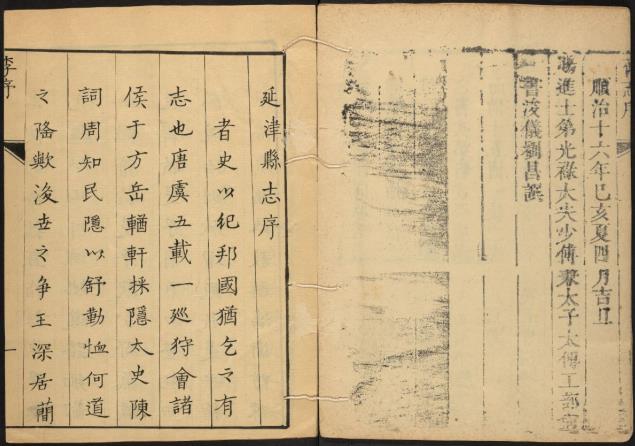 志序
順治十六年己亥夏四月吉旦
賜進士第光祿大夫少傅兼太子太傅工部尚
書浚儀劉昌譔
延津縣志序
者史以紀邦國猶乞之有
志也唐虞五載一廵狩會諸
侯于方岳輶軒採隱太史陳
詞周知民隱以舒勤恤何道
之隆歟後世之争王深居蕳
李序
一